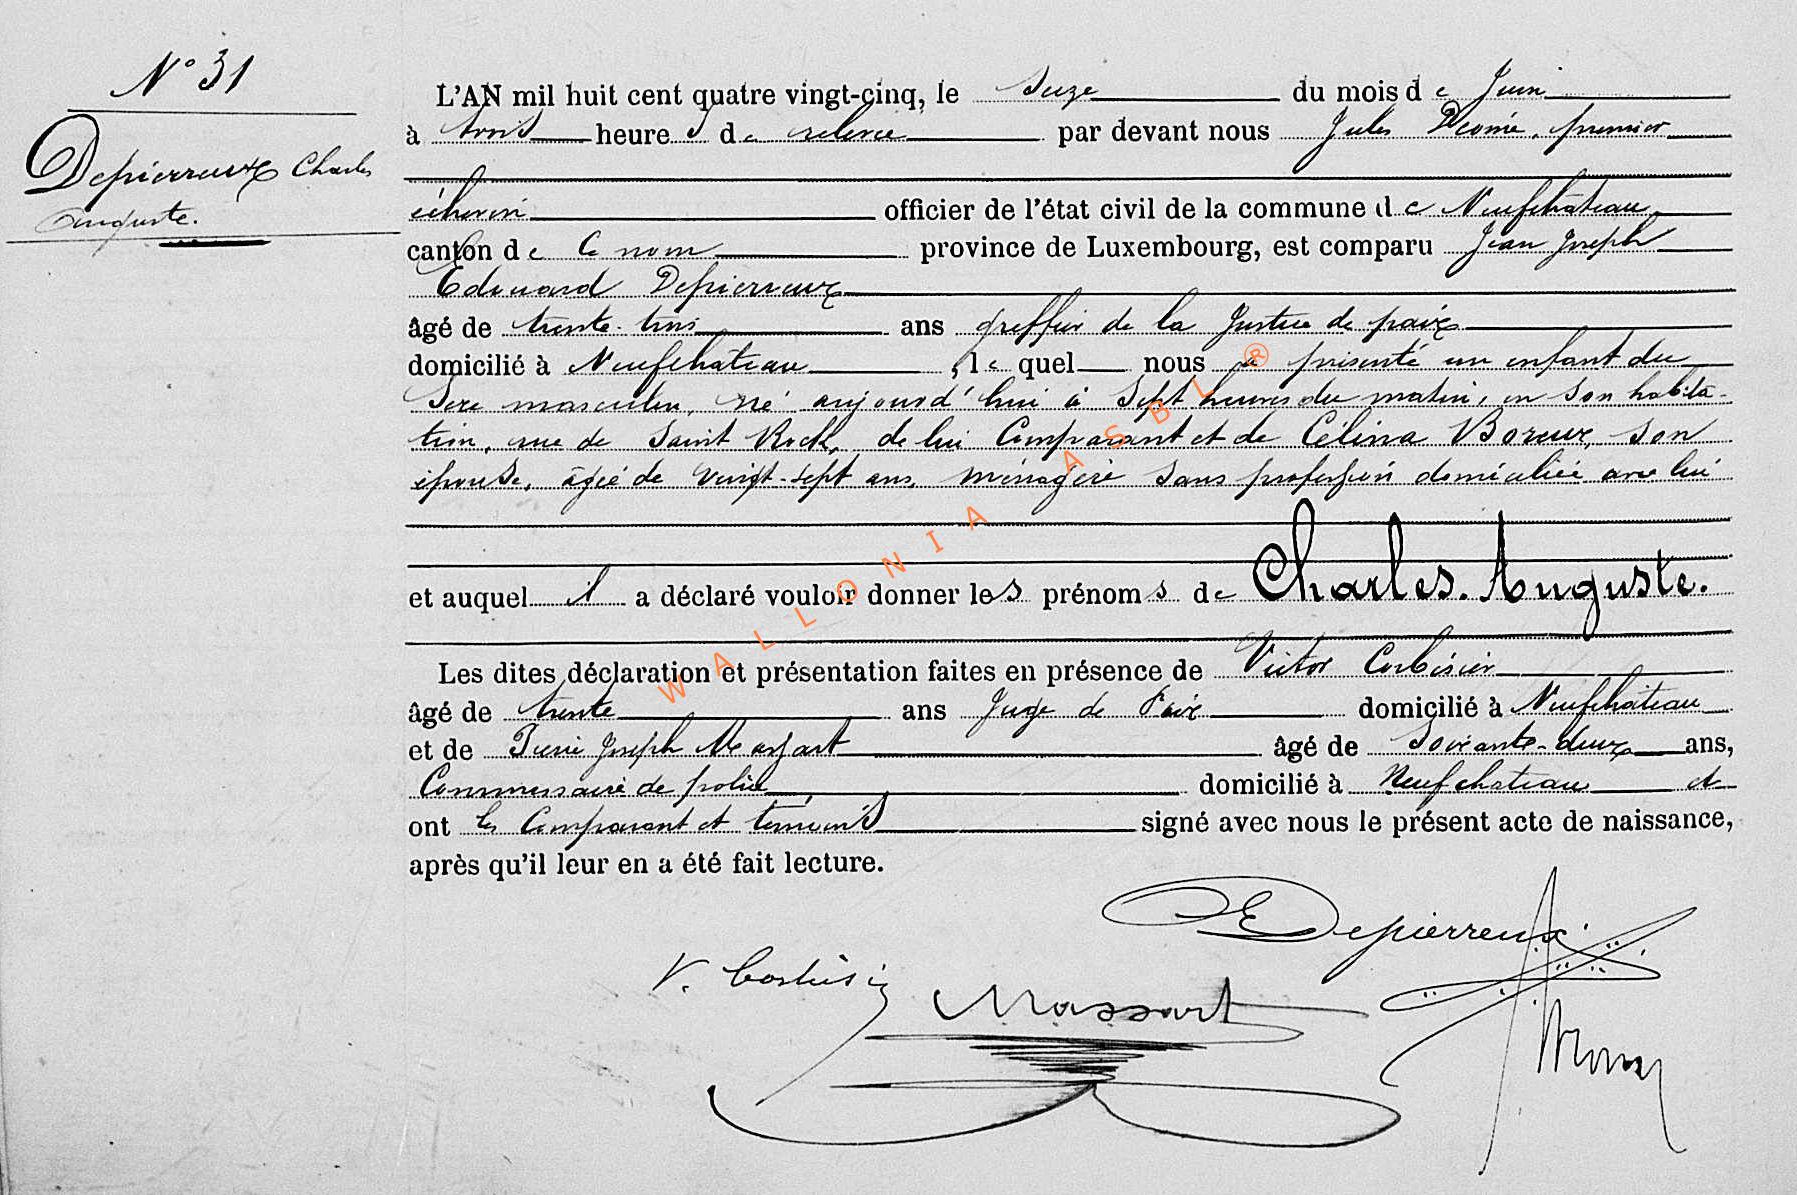 N° 31
Depierreux Charles
Auguste.
L'AN mil huit cent quatre vingt-cinq, le seize du mois de Juin
à trois heures de relevée par devant nous Jules premier
échevin officier de l'état civil de la commune de Neufchâteau
canton de Ce nom province de Luxembourg, est comparu Jean Joseph
Edouard Depierreux
âgé de trente-trois ans greffier de la Justice de paix
domicilié à Neufchâteau, lequel nous a présenté un enfant du
sexe masculin, né aujourd'hui à sept heures du matin, en son habita-
tion, rue de Saint Roch, de lui Comparant et de Célina Boreux, son
épouse, âgée de vingt-sept ans, ménagère sans profession domiciliée avec lui
et auquel il a déclaré vouloir donner les prénoms de Charles. Auguste.
Les dites déclaration et présentation faites en présence de Victor Corbisier
âgé de trente ans Juge de Paix domicilié à Neufchâteau
et de Pierre Joseph Massart âgé de soixante-deux ans,
Commissaire de police domicilié à Neufchateau et
ont les Comparant et témoins signé avec nous le présent acte de naissance,
après qu'il leur en a été fait lecture.
E Depierreux
V. Corbisier
Massart
WALLONIA ASBL ®